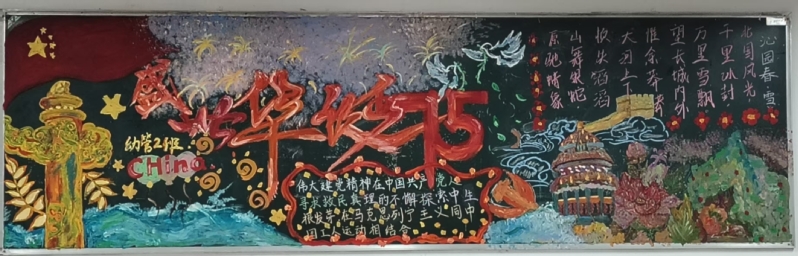 盛世华诞75
幼管2班
China
伟大建党精神在中国共产党是
寻求救民真理的不懈探索中生
根发芽在马克思列宁主义同中
国工人运动相结合
沁园春·雪
北国风光
千里冰封
万里雪飘
望长城内外
惟余莽莽
大河上下
顿失滔滔
山舞银蛇
原驰蜡象